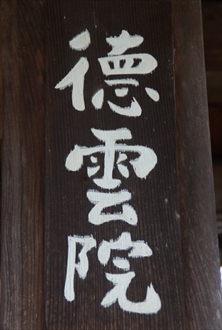 德雲院